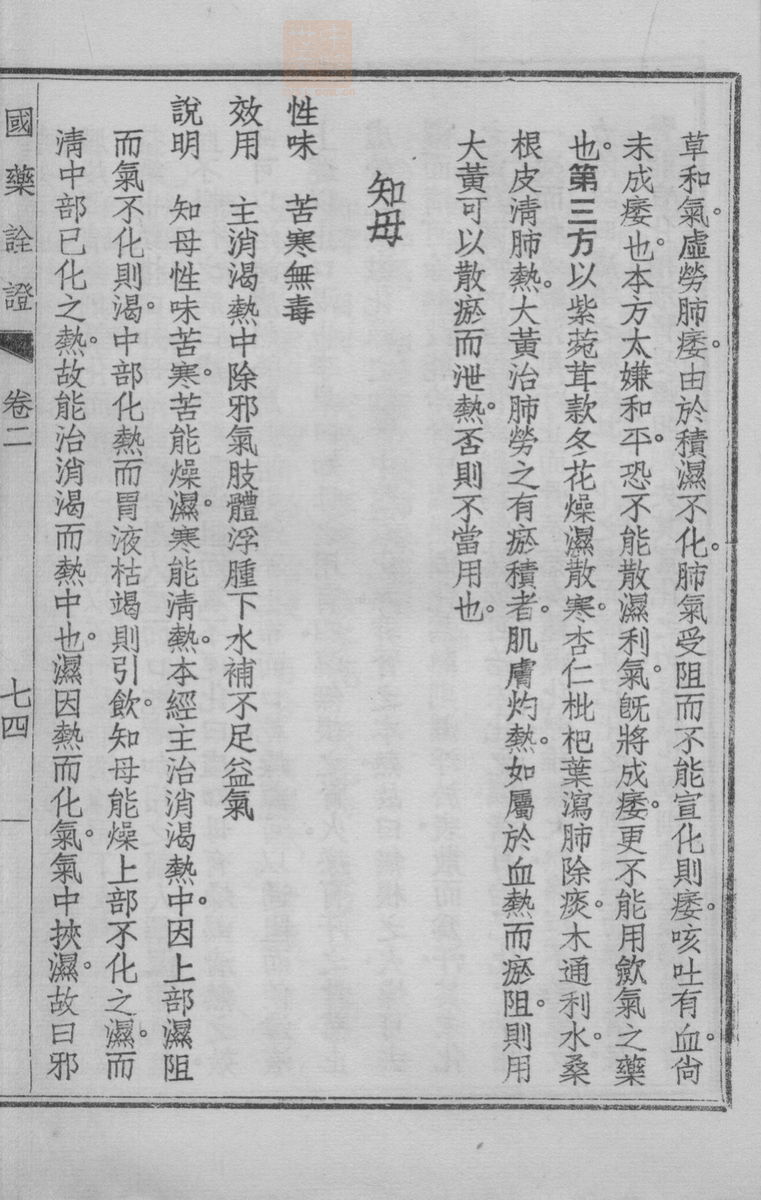 草和氣。虛勞肺痿。由於積濕不化。肺氣受阻而不能宣化則痿。咳吐有血。尙
未成痿也。本方太嫌和平。恐不能散濕利氣。旣將成痿。更不能用歛氣之藥
也。第三方以紫菀茸款冬花燥濕散寒。杏仁枇杷葉瀉肺除痰。木通利水。桑
根皮淸肺熱。大黃治肺勞之有瘀積者。肌膚灼熱。如屬於血熱而瘀阻。則用
大黃可以散瘀而泄熱。否則不當用也。
知母
性味　苦寒無毒
效用　主消渴熱中除邪氣肢體浮腫下水補不足益氣
說明　知母性味苦寒。苦能燥濕。寒能淸熱。本經主治消渴熱中。因上部濕阻
而氣不化則渴。中部化熱而胃液枯竭則引飲。知母能燥上部不化之濕。而
淸中部已化之熱。故能治消渴而熱中也。濕因熱而化氣。氣中挾濕。故曰邪
國藥詮證　卷二　七四